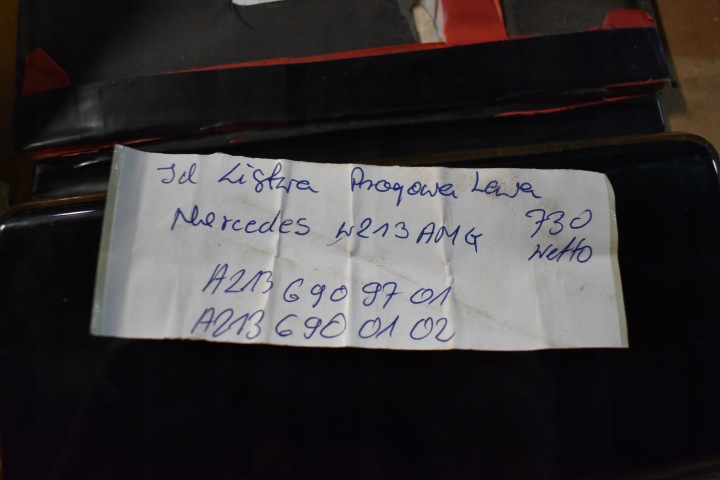 Jd Listwa Progowa Lewa
Mercedes W213 AMG 730
netto
A213 690 97 01
A213 690 01 02